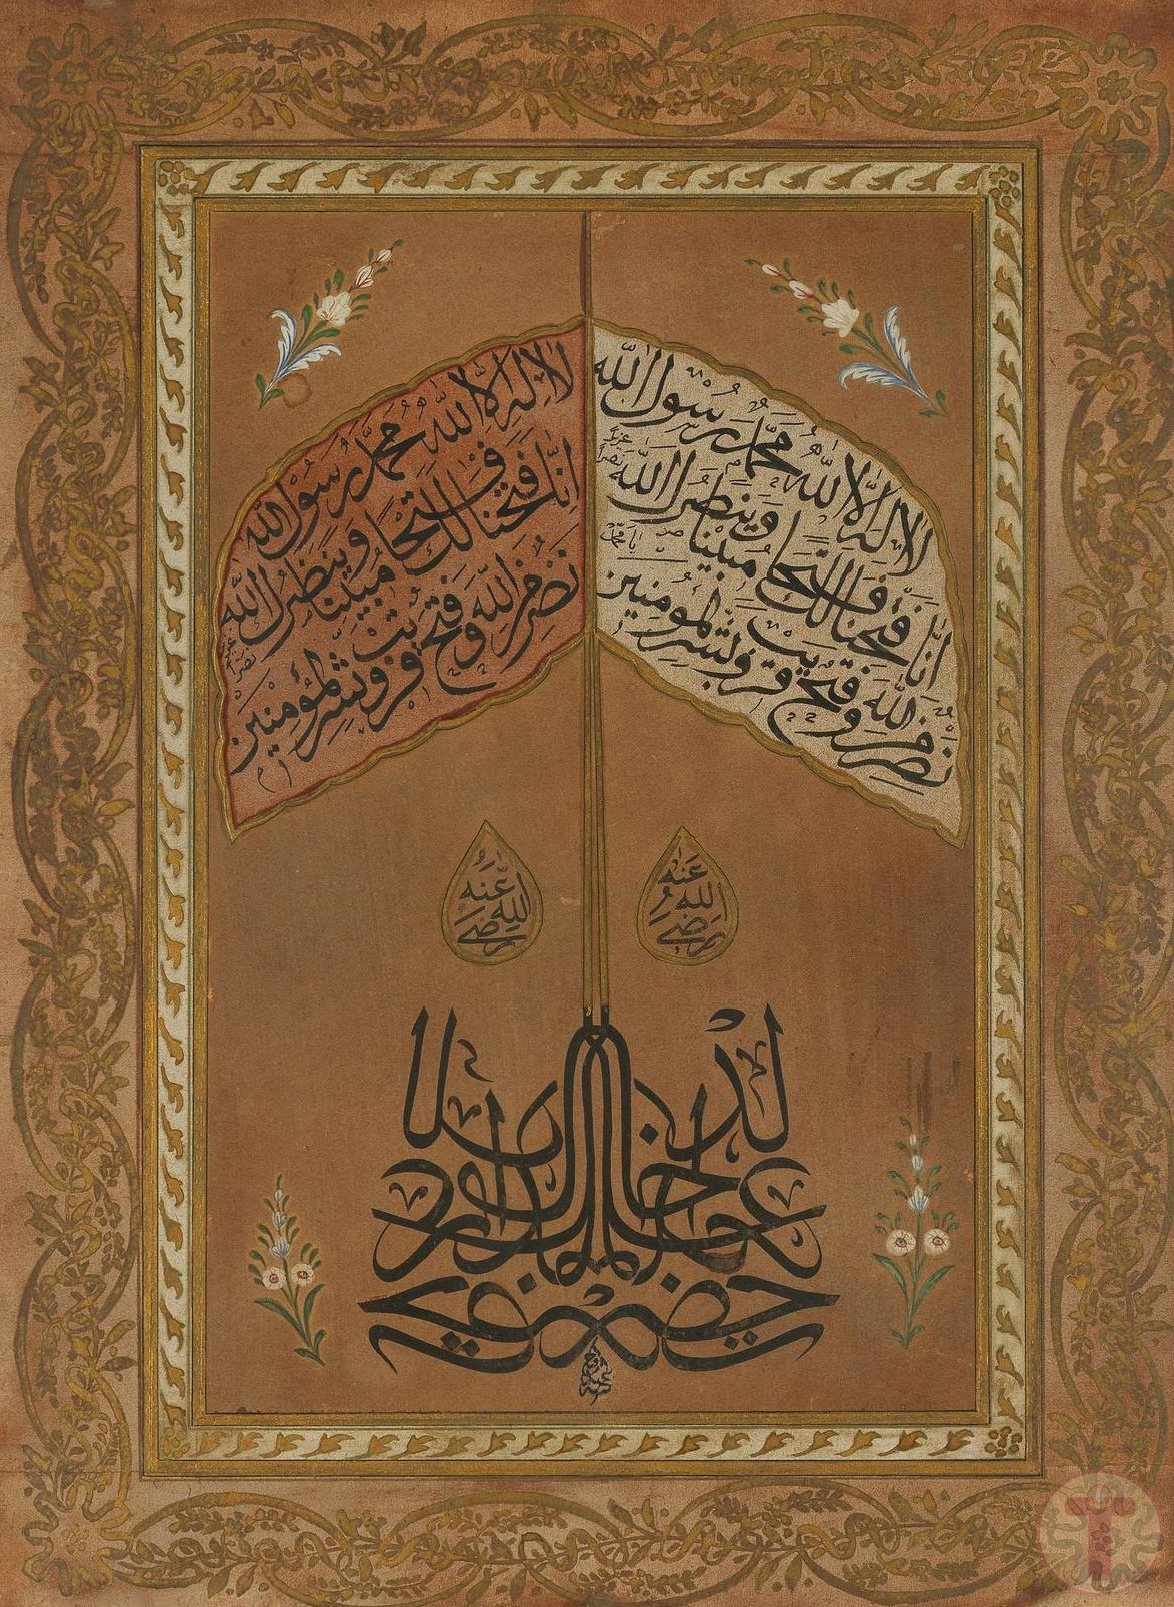 لا اله الا الله محمد رسول الله
انا فتحنا لك فتحا مبينا وينصرك الله
نصرا عزيزا
نصر من الله وفتح قريب وبشر المؤمنين
لا اله الا الله محمد رسول الله
انا فتحنا لك فتحا مبينا وينصرك الله
نصرا عزيزا
يا محمد
نصر من الله وفتح قريب وبشر المؤمنين
رضي الله عنه
رضي الله عنه
حضرت خالد